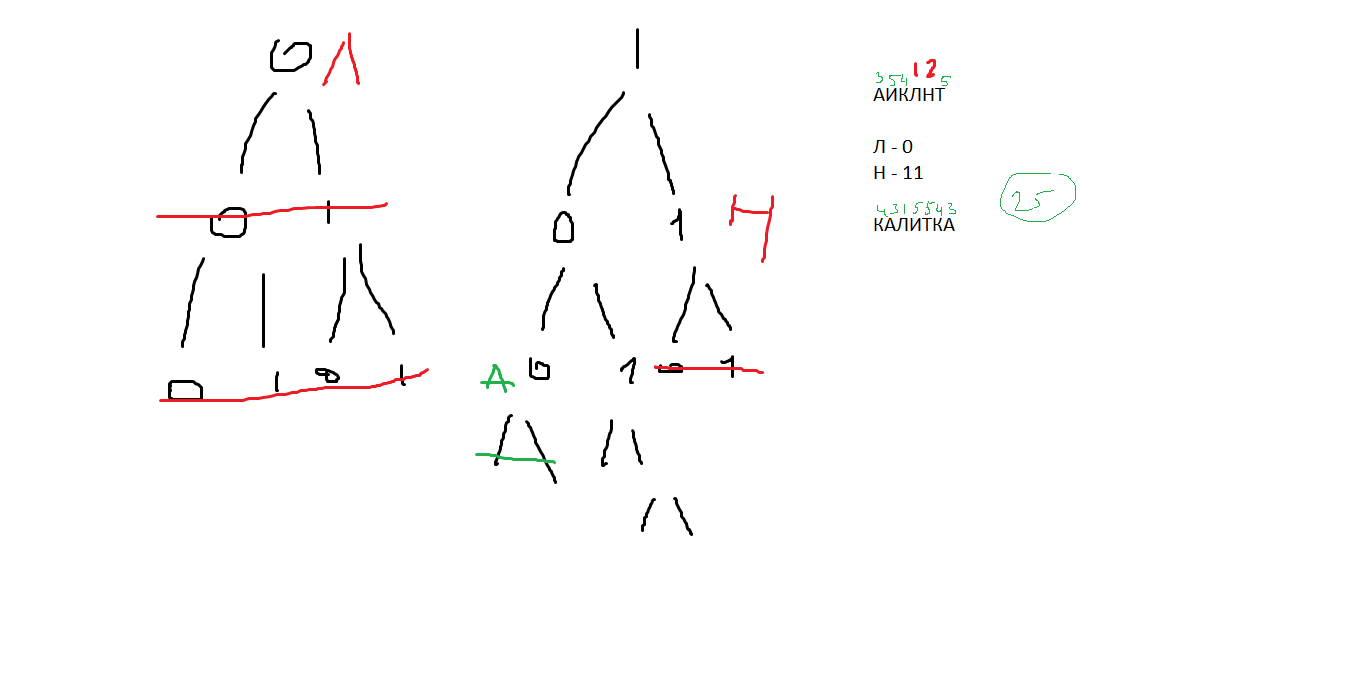 0 Л 1
0 1 0 1 Н
0 1 0 1 А 0 1 0 1
354125
АИКЛНТ
Л - 0
Н - 11
4315543
КАЛИТКА
25